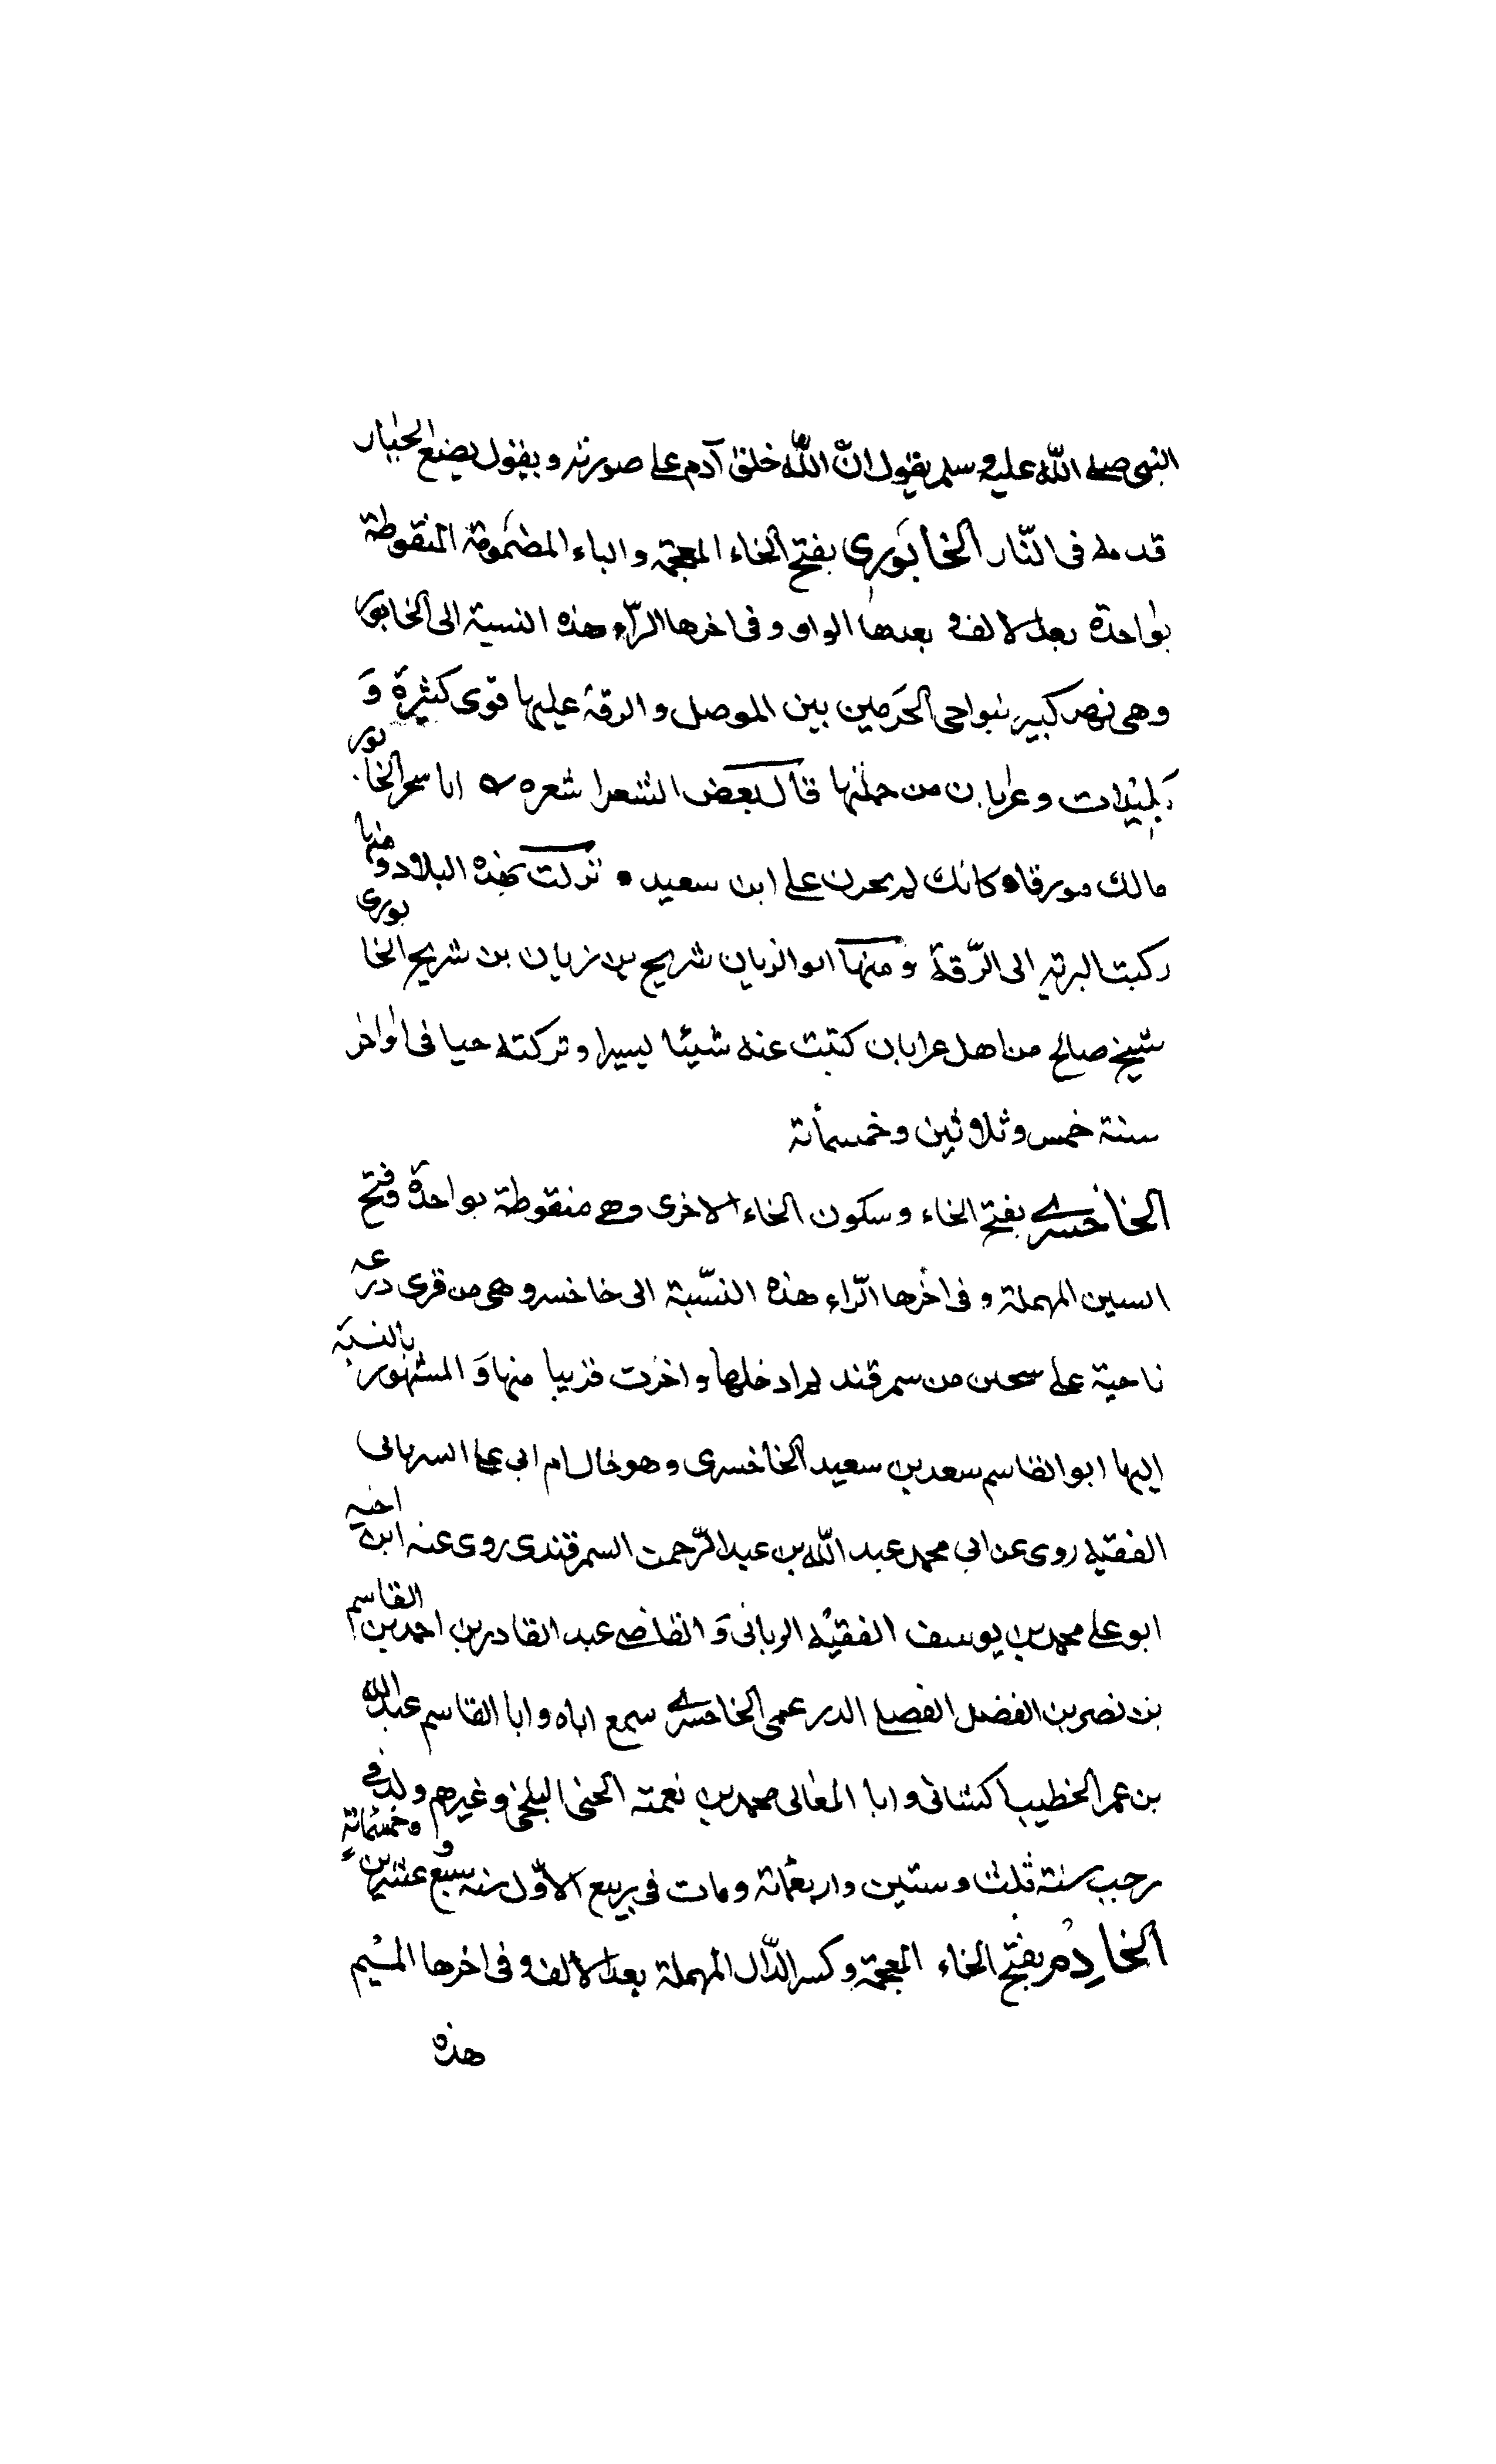 النبى صلى الله عليه وسلم يقول انّ الله خلق آدم على صورته ويقول يضع الجبار
قدمه فى النّار الخابَورى بفتح الخاء المعجمة والباء المضمومة المنقوطة
بواحدة بعد الالف وبعدها الواو وفى اخرها الرّاء هذه النسبة الى الخابور
وهى نهر كبير بنواحى الحَرمين بين الموصل والرقة عليها قوى كثيرة وَ
بليدات وعرابان من جملتها قال بعض الشعرا شعره ايا سحر الخابور
مالك مورقا كانك لم يحزن على ابن سعيد نزلت بهذه البلاد ومنها
ركبت البرية الى الرّقة ومنها ابو الزيان شريح بن زيان بن شريح الخابورى
شيخ صالح من اهل عرابان كتبت عنه شيئا يسيرا وتركته حيا فى اواخر
سنة خمس وثلاثين وخمسمأنة
الخاخسرى بفتح الخاء وسكون الخاء الاخرى وهى منقوطة بواحدة وفتح
السين المهملة وفى اخرها الرّاء هذه النسّبة الى خاخسر وهى من قرى درعه
ناحية على من سمرقند لم ادخلها واخزت قريبا منها وَالمشهور بالنسبة
اليها ابو القاسم سعد بن سعيد الخاخسرى وهو خال ام ابى على
الفقيه روى عن ابى محمد عبد الله بن عبد الرّحمن السمرقندى روى عنه ابن اخيه
ابو على محمد بن يوسف الفقيه الربانى وَالقاضى عبد القادر بن احمد بن القاسم
بن نصر بن الفضل الفصلى الدرعمى الخاخسرى سمع اباه وابا القاسم عبد الله
بن عمر الخطيب اكشانى وابا المعالى محمد بن نعمة الحنى البلخى وغيرهم ولد فى
رجب سنة ثلث وستين واربعمأنة ومات فى ربيع الاوّل سنة سبع وعشرين وخمسمائة
الخادِم بفتح الخاء المعجمة وكسر الدّال المهملة بعد الالف وفى اخرها الميم
هذه